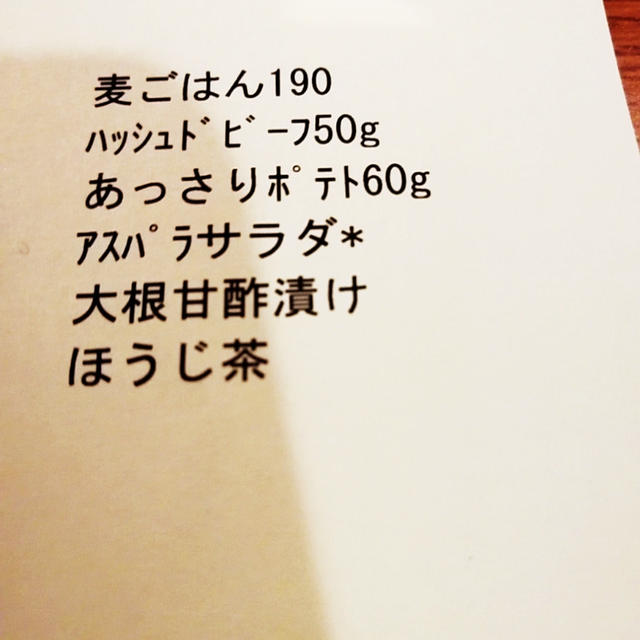 麦ごはん190
ﾊｯｼｭﾄﾞﾋﾞｰﾌ50g
あっさりﾎﾟﾃﾄ60g
ｱｽﾊﾟﾗサラダ*
大根甘酢漬け
ほうじ茶